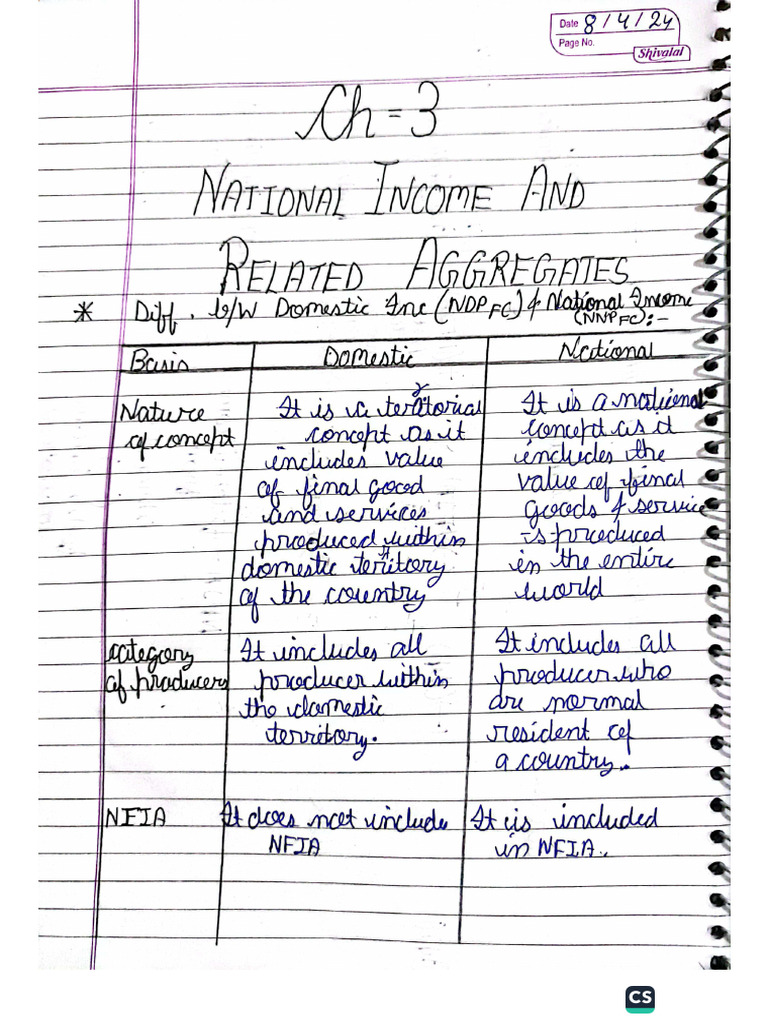 Date 8/4/24
Page No.
Shivalal
Ch = 3
NATIONAL INCOME AND
RELATED AGGREGATES
* Diff. b/w Domestic Inc (NDP FC) & National Income
(NNP FC):-
Basis Domestic National
Nature of concept
It is a territorial
concept as it
includes value
of final good
and services
produced within
domestic territory
of the country
It is a national
concept as it
includes the
value of final
goods & service
is produced
in the entire
world
category
of producers
It includes all
producer within
the domestic
territory.
It includes all
producer who
are normal
resident of
a country.
NFIA
It does not include
NFIA
It is included
in NFIA.
CS